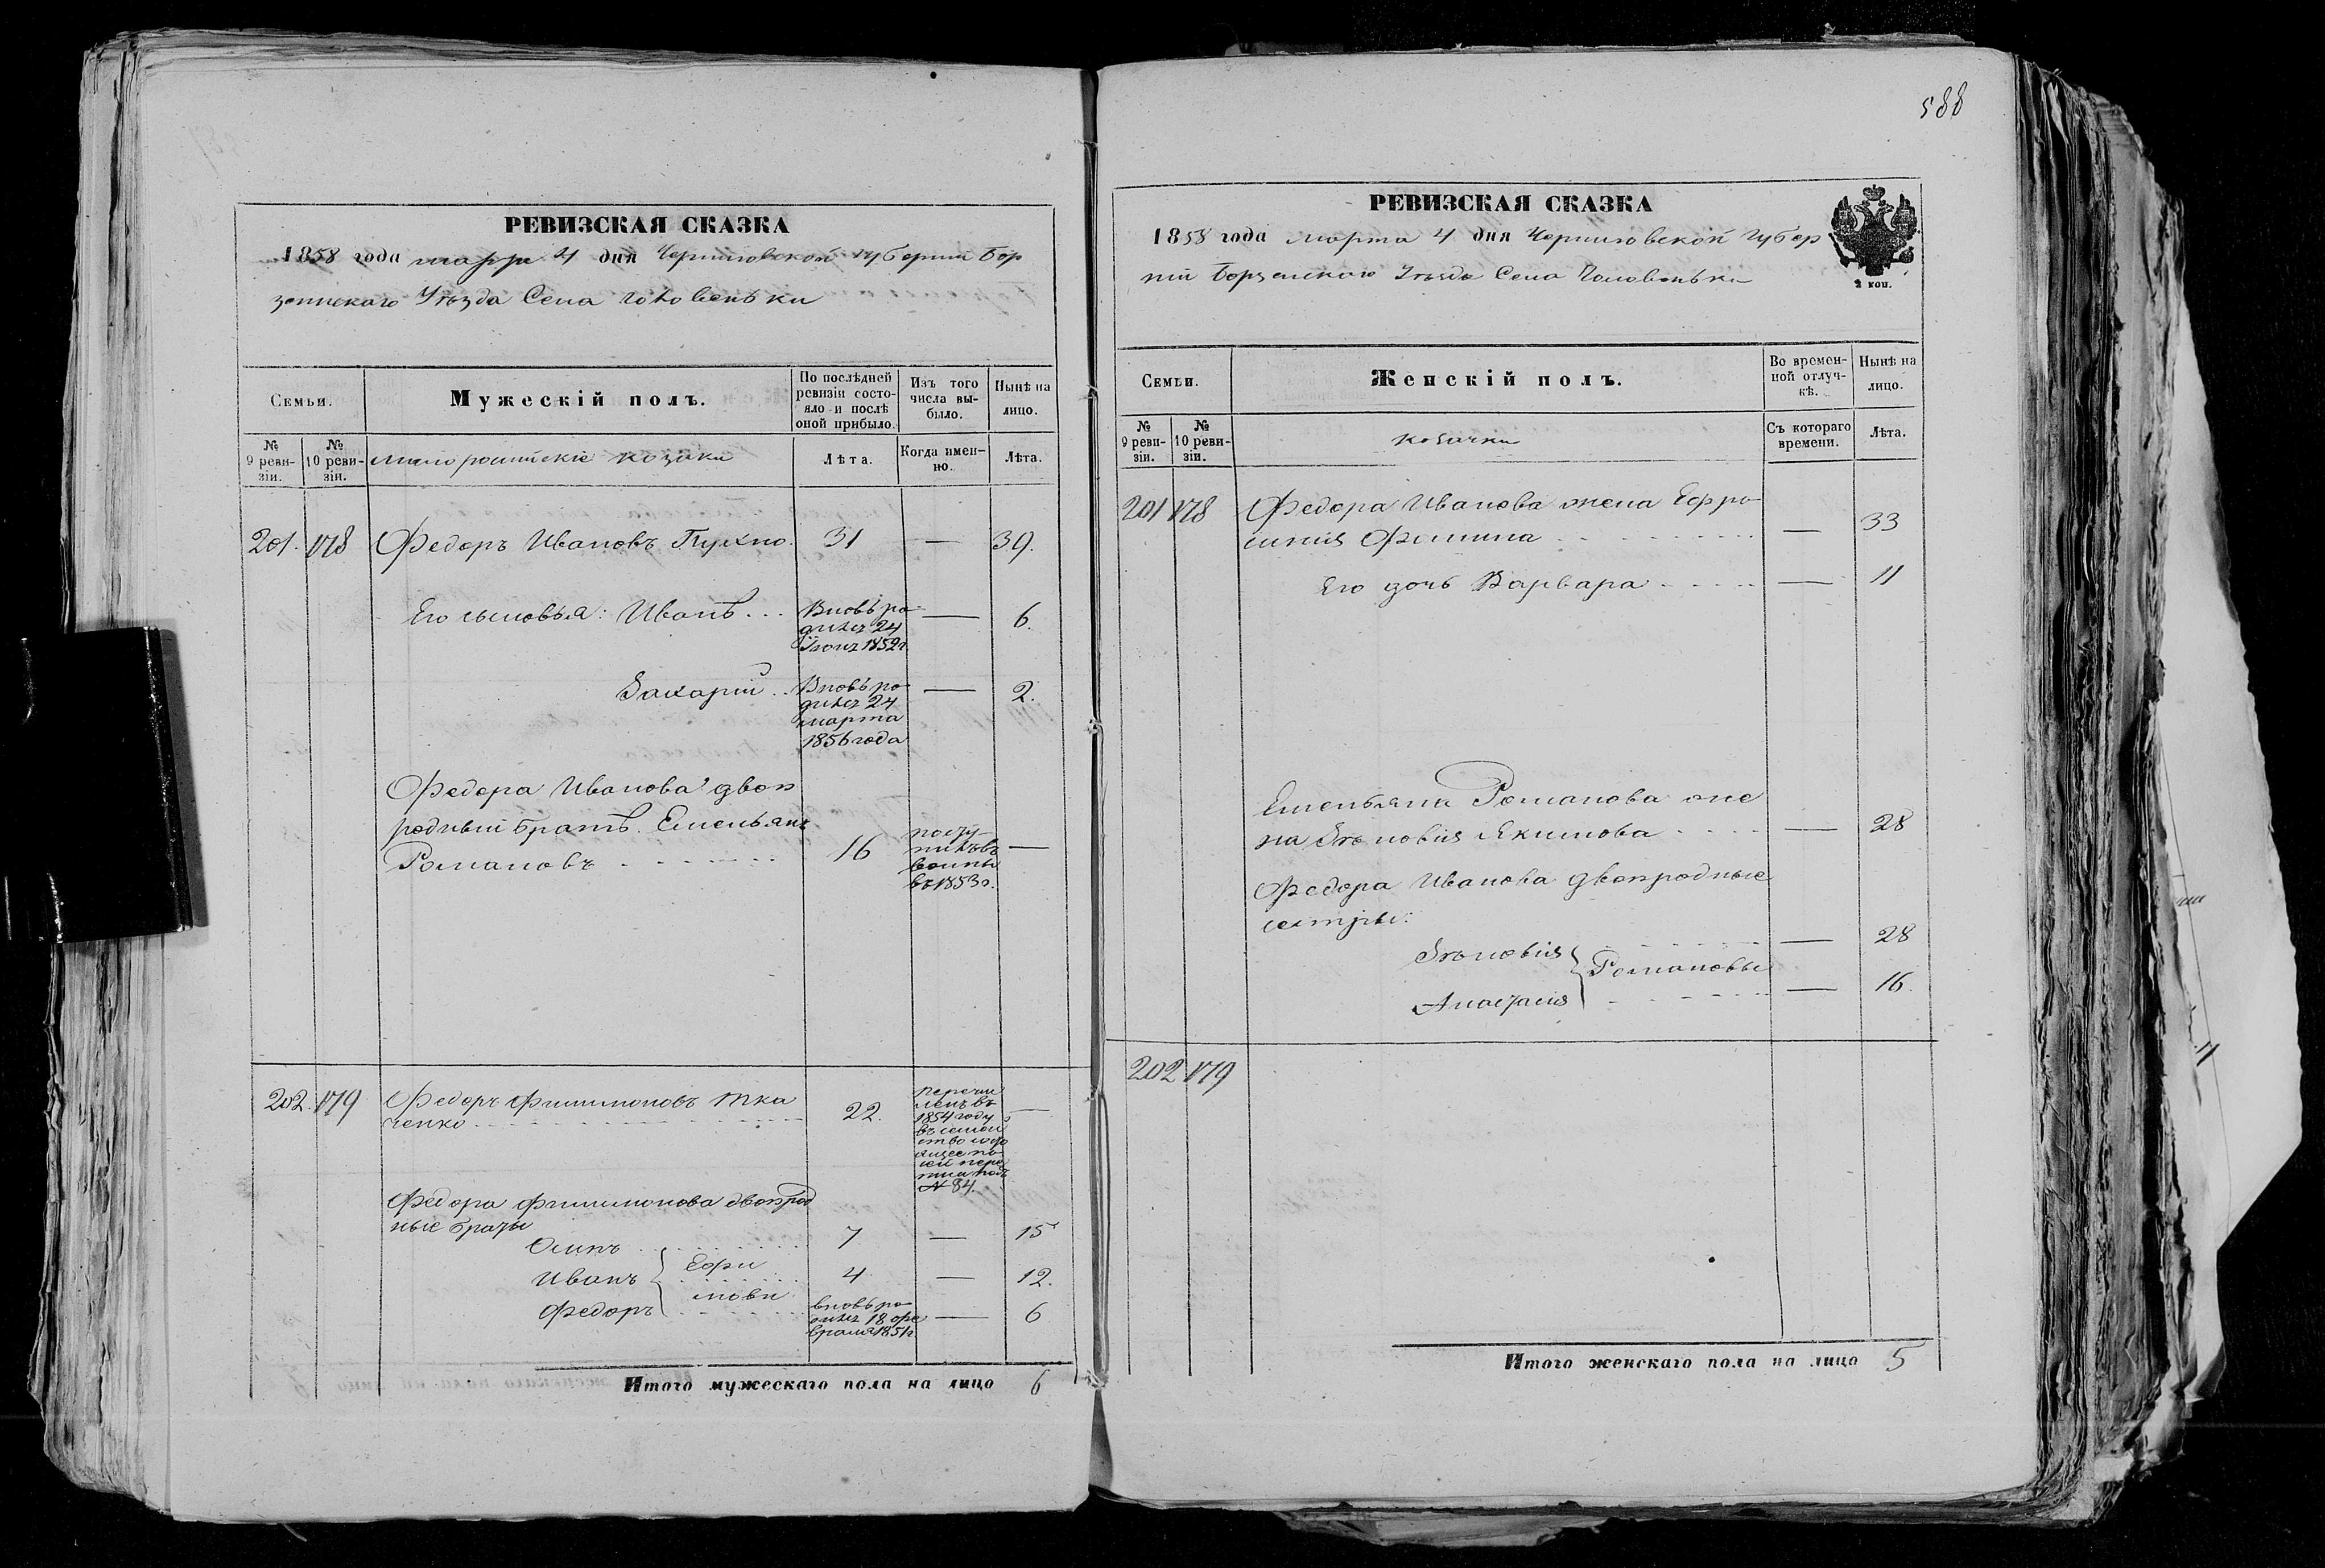 588
РЕВИЗСКАЯ СКАЗКА
1858 года марта 4 дня Черниговской губернии Бор
зенскаго Уѣзда Села Головеньки
Семьи.
Мужескій полъ.
По послѣдней ревизіи состояло и послѣ оной прибыло.
Изъ того числа выбыло.
Нынѣ на лицо.
№ 9 ревизіи.
№ 10 ревизіи.
малороссійскіе козаки
Лѣта.
Когда именно.
Лѣта.
201. 178 Федоръ Ивановъ Пухно. 31 — 39.
Его сыновья: Иванъ... Вновь ро-
дился 24
Іюня 1852 г.
— 6.
Захарій.. Вновь ро-
дился 24
марта
1856 года
— 2.
Федора Иванова двою
родный братъ. Емельянъ
Романовъ 16
посту-
пилъ въ
воины
въ 1853 г.
—
202. 179 Федоръ Филимоновъ Тка
ченко 22.
перечи
сленъ въ
1854 году
въ семей
ство
№ 84.
—
Федора Филимонова двоюрод
ные браты
Осипъ 7 — 15
Иванъ Ефи 4 — 12.
мовы
Федоръ вновь ро-
дился 18 фе
враля 1851 г.
— 6
Итого мужескаго пола на лицо 6
РЕВИЗСКАЯ СКАЗКА
1858 года марта 4 дня Черниговской Губер
ніи Борзенскаго Уѣзда Села Головеньки
2 коп.
Семьи.
Женскій полъ.
Во временной отлучкѣ.
Нынѣ на лицо.
№ 9 ревизіи.
№ 10 ревизіи.
козачки
Съ котораго времени.
Лѣта.
201 178 Федора Иванова жена Ефро
синія Фомина — 33
Его дочь Варвара — 11
Емельяна Романова же
на Яковлева Екимова — 28
Федора Иванова двоюродные
сестры:
— 28
Романовы
Анастасія — 16.
202 179
Итого женскаго пола на лицо 5